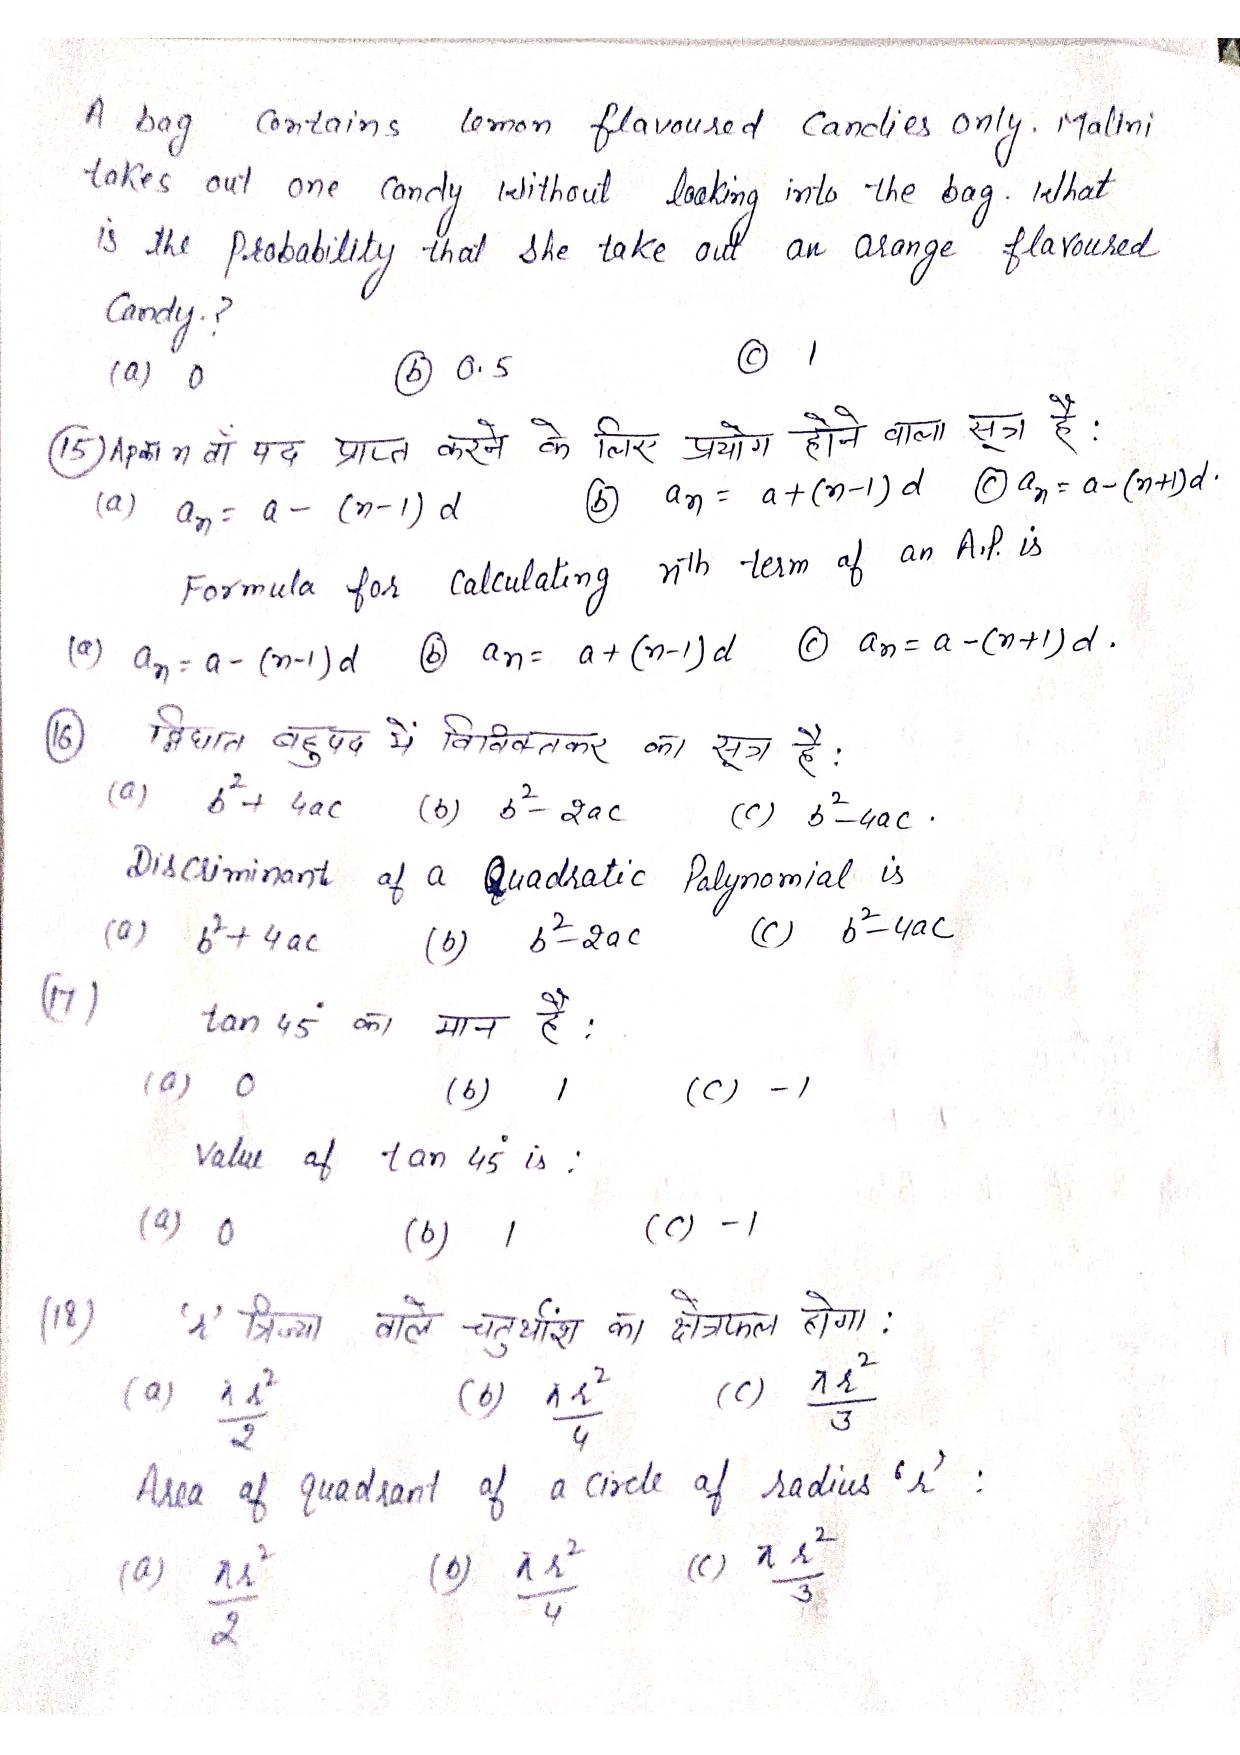 A bag contains lemon flavoured Candies only. Malini
takes out one Candy without looking into the bag. What
is the Probability that she take out an orange flavoured
Candy.?
(a) 0 (b) 0.5 (c) 1
(15) Ap का n वाँ पद प्राप्त करने के लिए प्रयोग होने वाला सूत्र है :
(a) aₙ = a - (n-1) d (b) aₙ = a + (n-1) d (c) aₙ = a - (n+1)d.
Formula for Calculating nth term of an A.P. is
(a) aₙ = a - (n-1)d (b) aₙ = a + (n-1)d (c) aₙ = a - (n+1)d.
(16) द्विघात बहुपद में विविक्तकर का सूत्र है :
(a) b² + 4ac (b) b² - 2ac (c) b² - 4ac.
Discriminant of a Quadratic Polynomial is
(a) b² + 4ac (b) b² - 2ac (c) b² - 4ac
(17) tan 45° का मान है :
(a) 0 (b) 1 (c) -1
Value of tan 45° is :
(a) 0 (b) 1 (c) -1
(18) 'r' त्रिज्या वाले चतुर्थांश का क्षेत्रफल होगा :
(a) πr²/2 (b) πr²/4 (c) πr²/3
Area of quadrant of a circle of radius 'r' :
(a) πr²/2 (b) πr²/4 (c) πr²/3